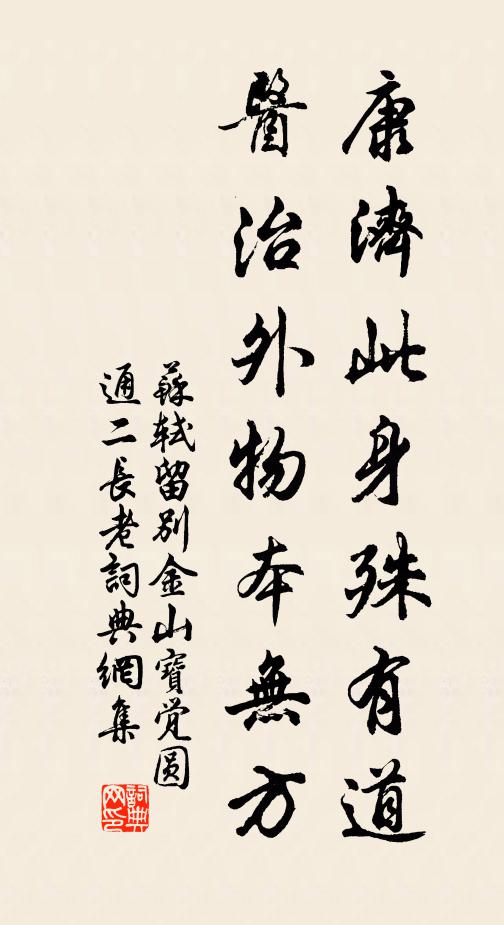 康濟此身殊有道
醫治外物本無方
蘇軾留別金山寶覺圓
通二長老詞典網集
詞典網印